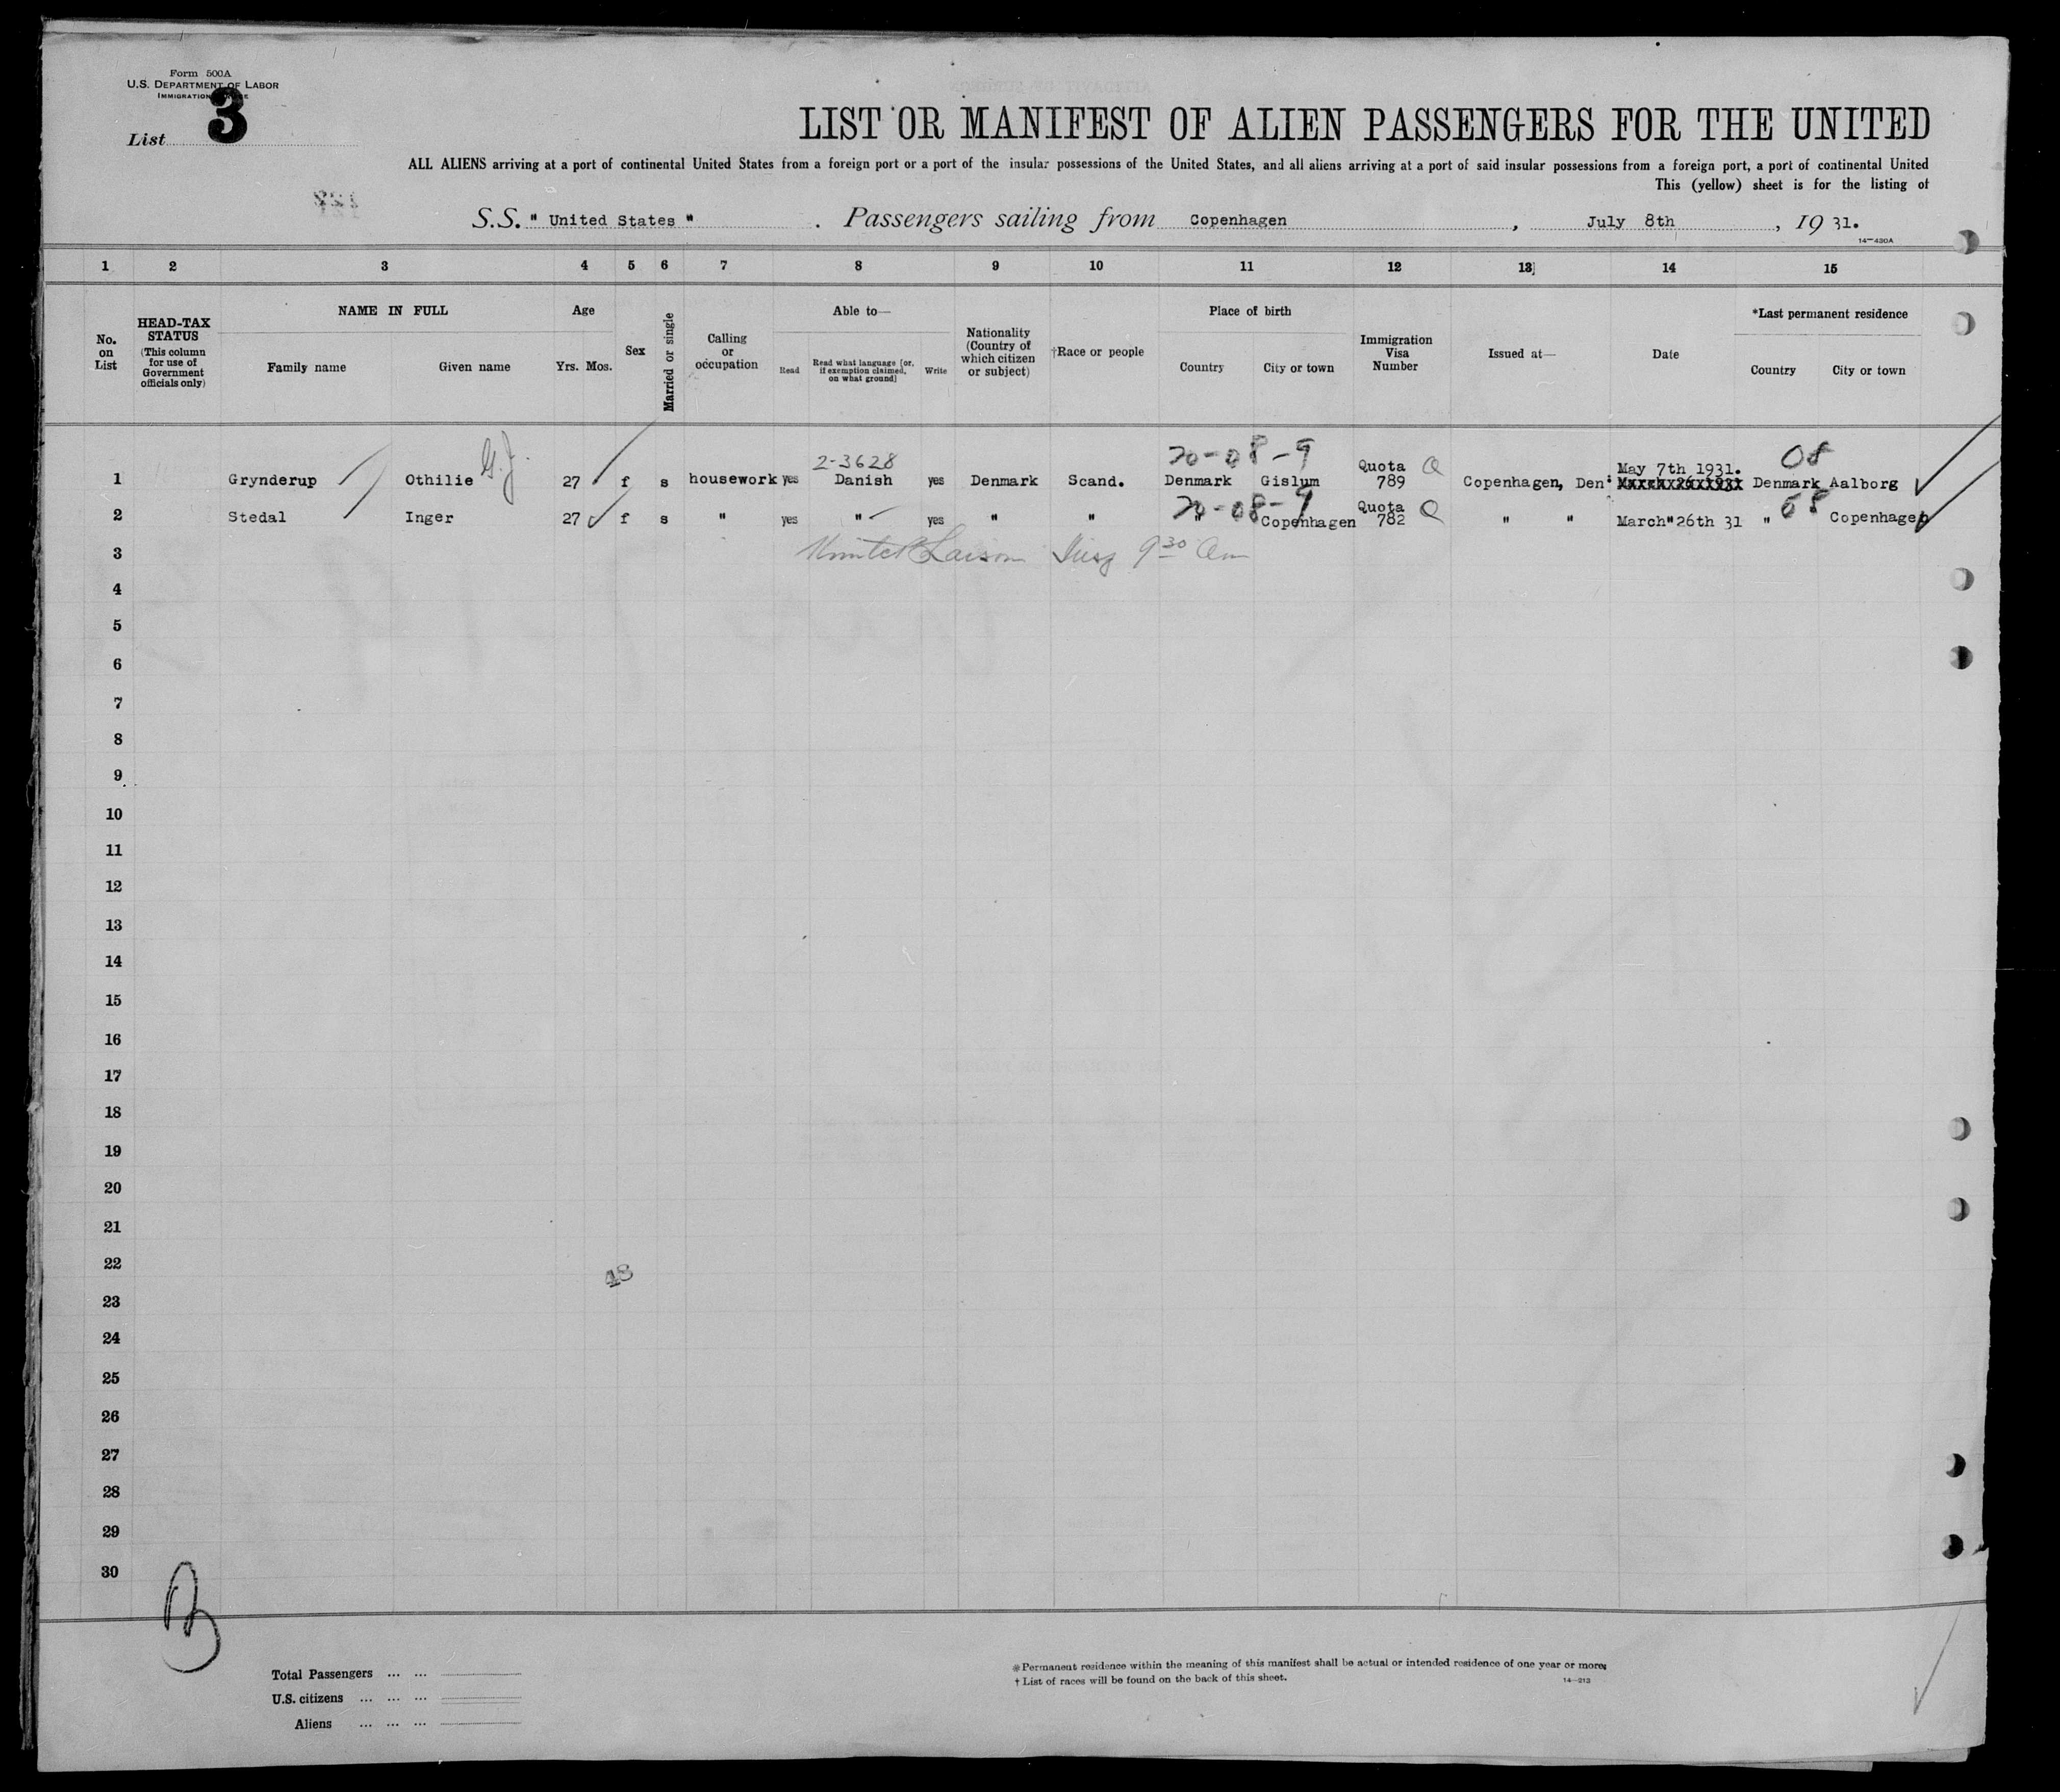 Form 500A
U.S. DEPARTMENT OF LABOR
IMMIGRATION
List 3
LIST OR MANIFEST OF ALIEN PASSENGERS FOR THE UNITED
ALL ALIENS arriving at a port of continental United States from a foreign port or a port of the insular possessions of the United States, and all aliens arriving at a port of said insular possessions from a foreign port, a port of continental United
This (yellow) sheet is for the listing of
S.S. " United States ". Passengers sailing from Copenhagen, July 8th, 19 31.
14—430A
1 2 3 4 5 6 7 8 9 10 11 12 13 14 15
No. on List
HEAD-TAX STATUS (This column for use of Government officials only)
NAME IN FULL
Family name Given name
Age
Yrs. Mos.
Sex
Married or single
Calling or occupation
Able to—
Read Read what language [or, if exemption claimed, on what ground] Write
Nationality (Country of which citizen or subject)
†Race or people
Place of birth
Country City or town
Immigration Visa Number
Issued at—
Date
*Last permanent residence
Country City or town
G.J. 2-3628 20-08-9 Quota Q May 7th 1931. 08
1 Grynderup Othilie 27 f s housework yes Danish yes Denmark Scand. Denmark Gislum 789 Copenhagen, Den. Denmark Aalborg
20-08-9 Quota Q 08
2 Stedal Inger 27 f s " yes " yes " " " Copenhagen 782 " " March 26th 31 " Copenhagen
3 Larson 9 30 am
4
5
6
7
8
9
10
11
12
13
14
15
16
17
18
19
20
21
22
48
23
24
25
26
27
28
29
30
B
Total Passengers ... ...
U.S. citizens ... ... ...
Aliens ... ... ...
*Permanent residence within the meaning of this manifest shall be actual or intended residence of one year or more.
† List of races will be found on the back of this sheet.
14—213